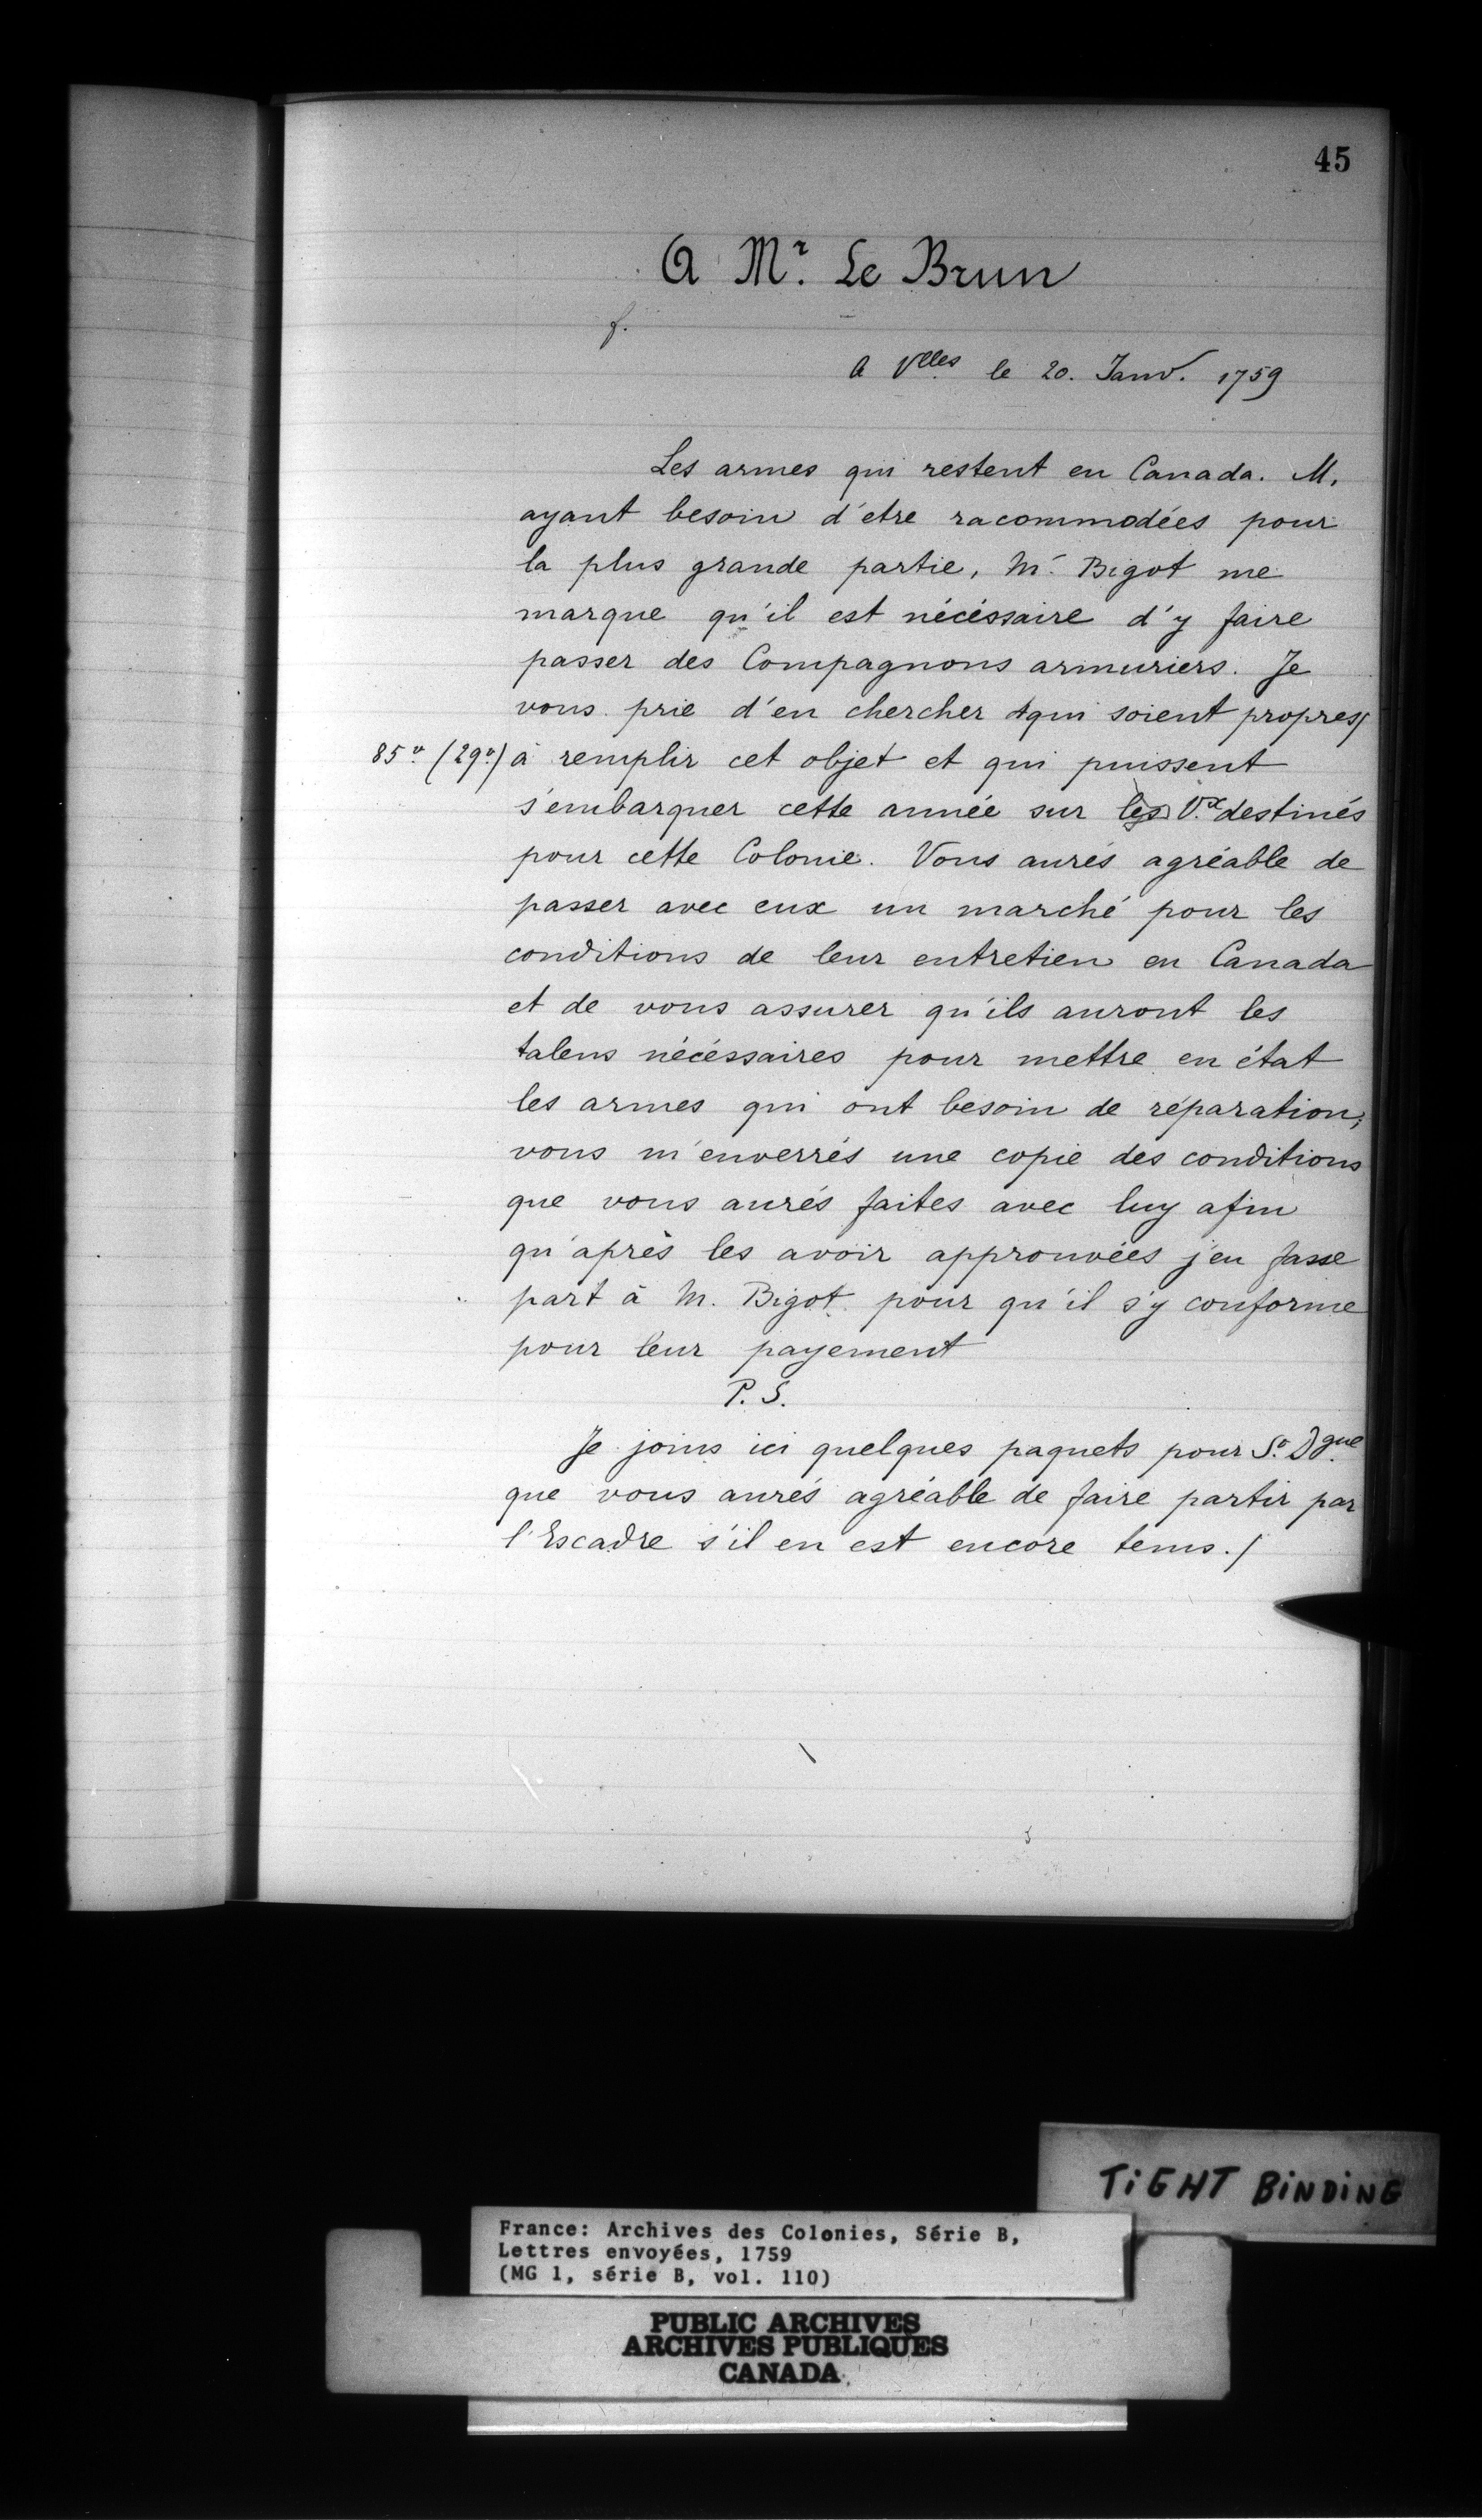 45
A Mr. Le Brun
f.
A Vlles le 20. Janv. 1759
Les armes qui restent en Canada. M.
ayant besoin d'etre racommodées pour
la plus grande partie, Mr. Bigot me
marque qu'il est nécéssaire d'y faire
passer des Compagnons armuriers. Je
vous prie d'en chercher qui soient propres/
85vo (29vo) à remplir cet objet et qui puissent
s'embarquer cette année sur les V.x destinés
pour cette Colonie. Vous aurés agréable de
passer avec eux un marché pour les
conditions de leur entretien en Canada
et de vous assurer qu'ils auront les
talens nécéssaires pour mettre en état
les armes qui ont besoin de réparation;
vous m'enverrés une copie des conditions
que vous aurés faites avec luy afin
qu'après les avoir approuvées j'en fasse
part à M. Bigot pour qu'il s'y conforme
pour leur payement
P. S.
Je joins ici quelques paquets pour St. Dgue
que vous aurés agréable de faire partir par
l'Escadre s'il en est encore tems./
TiGHT BiNDiNG
France: Archives des Colonies, Série B,
Lettres envoyées, 1759
(MG 1, série B, vol. 110)
PUBLIC ARCHIVES
ARCHIVES PUBLIQUES
CANADA